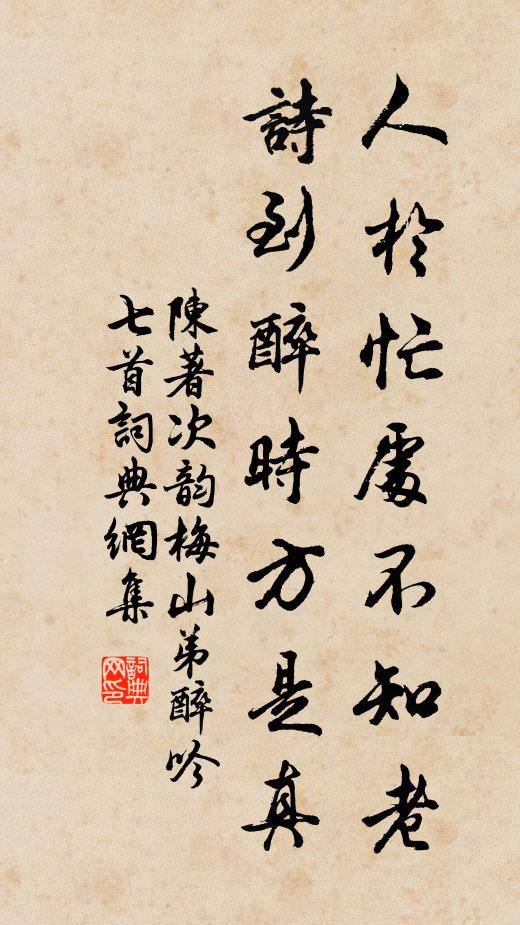 人於忙處不知老
詩到醉時方是真
陳著次韵梅山弟醉吟
七首詞典網集
詞典
网印